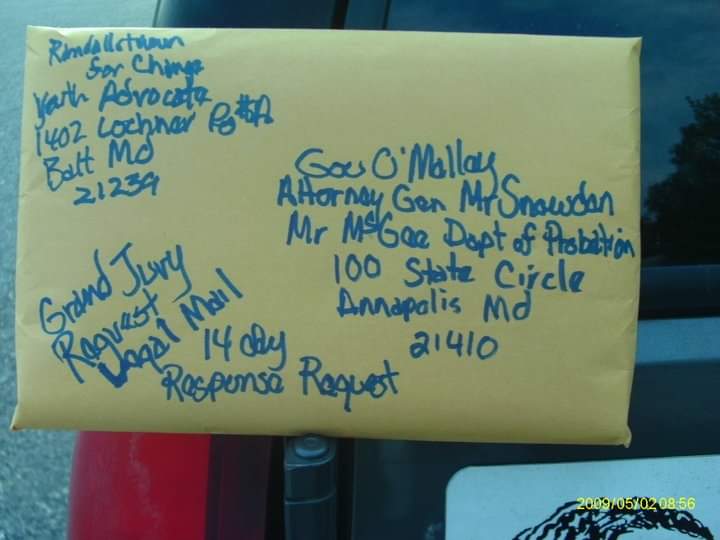 Randallstown
for Change
Youth Advocate
1402 Lochner Rd #A
Balt Md
21239
Gov O'Malley
Attorney Gen Mr Snowdon
Mr McGee Dept of Probation
100 State Circle
Annapolis Md
21410
Grand Jury
Request
Legal Mail
14 day
Response Request
2009/05/02 08:56